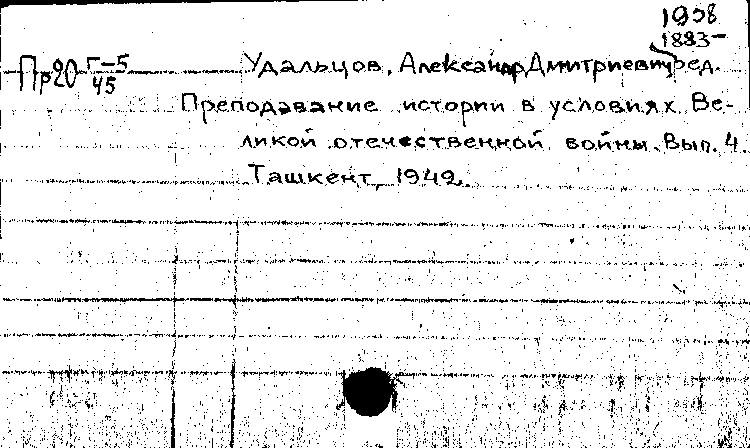 1958
1883-
Пр20 Г-5
45
Удальцов, Александр Дмитриевич, ред.
Преподавание истории в условиях Ве-
ликой отечественной войны. Вып. 4.
Ташкент, 1942.